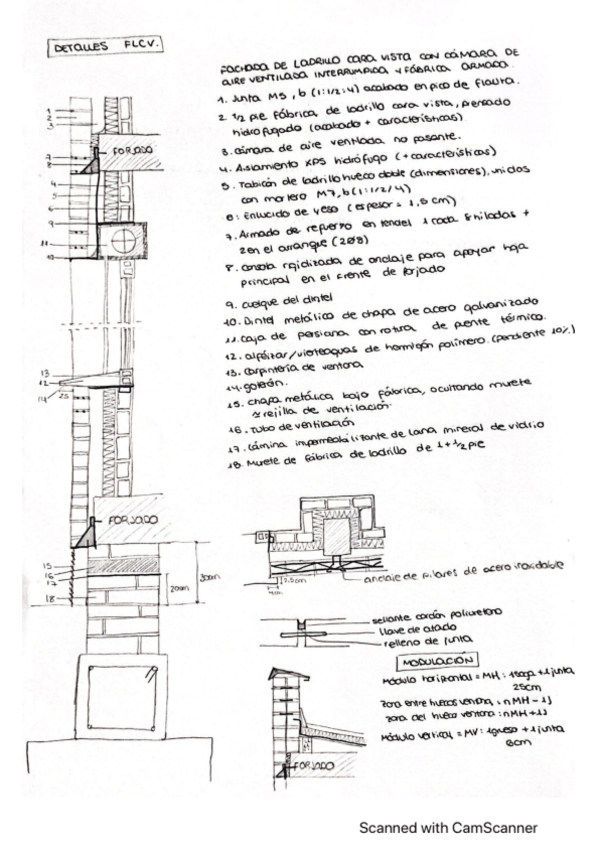 DETALLES FLCV.
FACHADA DE LADRILLO CARA VISTA CON CÁMARA DE
AIRE VENTILADA INTERRUMPIDA Y FÁBRICA ARMADA.
1. Junta M5, b (1:1/2:4) acabado en pico de flauta.
2. 1/2 pie fábrica, de ladrillo cara vista, prensado
hidrofugado (acabado + características)
3. cámara de aire ventilada no pasante.
4. Aislamiento XPS hidrófugo (+ características)
5. Tabicón de ladrillo hueco doble (dimensiones), unidos
con mortero M7, b (1:1/2/4)
6: Enlucido de yeso (espesor = 1,5 cm)
7. Armado de refuerzo en tendel 1 cada 8 hiladas +
2 en el arranque (2Ø8)
8. consola rigidizada de anclaje para apoyar hoja
principal en el frente de forjado
9. cuelgue del dintel
10. Dintel metálico de chapa de acero galvanizado
11. caja de persiana con rotura de puente térmico.
12. alféizar/vierteaguas de hormigón polímero. (pendiente 10%)
13. carpintería de ventana
14. goterón.
15. chapa metálica bajo fábrica, ocultando murete
≃ rejilla de ventilación.
16. Tubo de ventilación
17. Lámina impermeabilizante de lana mineral de vidrio
18. Murete de fábrica de ladrillo de 1 + 1/2 pie
1
2
3
FORJADO
7
8
4
5
6
9
11
10
13
12
14
25
FORJADO
15
16
17
18
20cm
30cm
2,5cm
4cm
anclaje de pilares de acero inoxidable
sellante cordón poliuretano
llave de atado
relleno de junta
MODULACIÓN
Módulo horizontal = MH: 1 soga + 1 junta
25cm
zona entre huecos ventana: nMH - 1J
zona del hueco ventana: nMH + 1J
Módulo vertical = MV: 1 grueso + 1 junta
6cm
FORJADO
Scanned with CamScanner